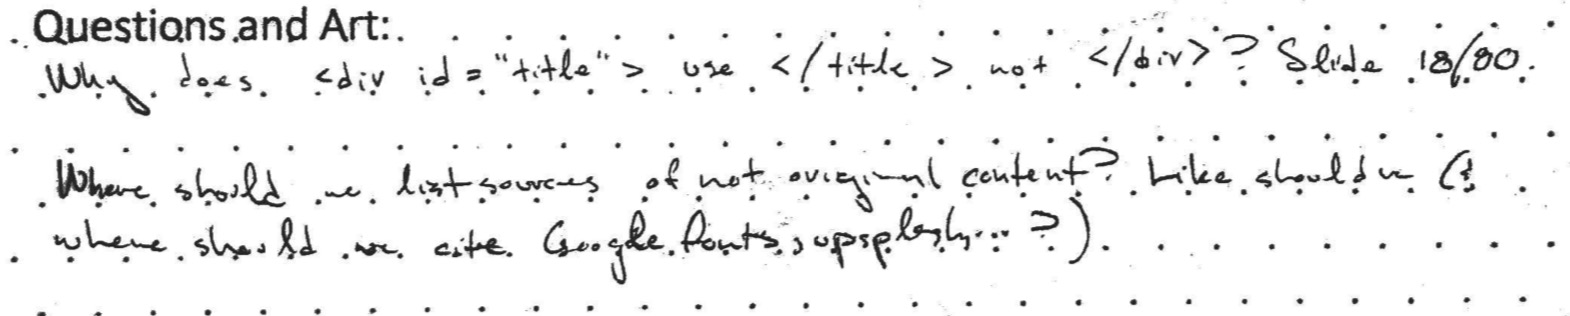 Questions and Art:
Why does <div id="title"> use </title> not </div>? Slide 18/80.
Where should we list sources of not original content? Like should we (&
where should we cite Google fonts, upsplash... ?).